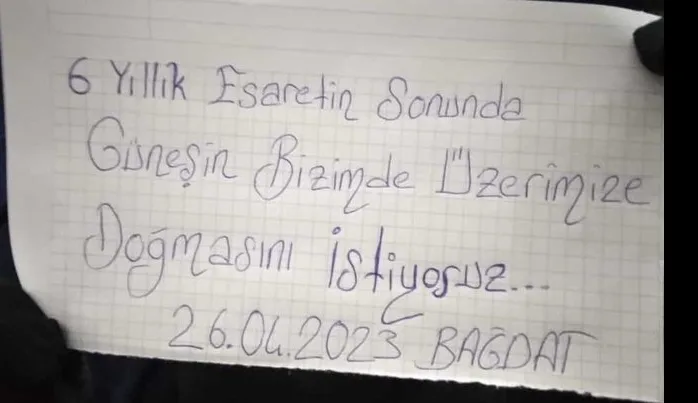 6 Yıllık Esaretin Sonunda
Güneşin Bizimde Üzerimize
Doğmasını istiyoruz...
26.04.2023 BAĞDAT